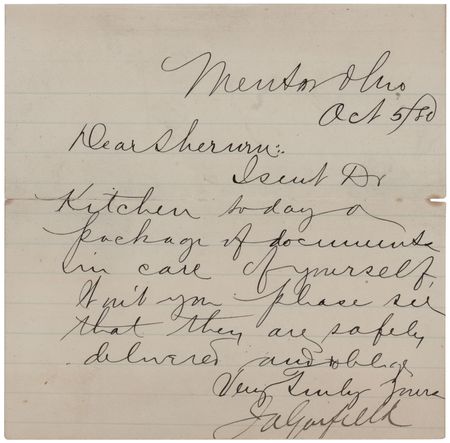 Mentor Ohio
Oct 5/80
Dear Sherwin:
I sent Dr
Kitchen today a
package of documents
in care of yourself.
Won't you please see
that they are safely
delivered, and oblige
Very Truly Yours
J A Garfield